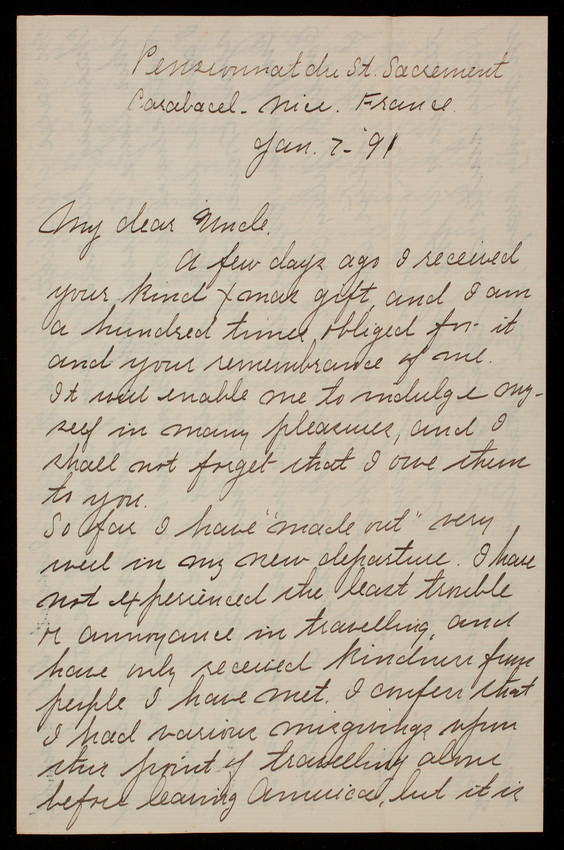 Pensionnat du St. Sacrement
Carabacel - Nice. France.
Jan. 7 - '91
My dear Uncle.
A few days ago I received
your kind Xmas gift, and I am
a hundred times obliged for it
and your remembrance of me.
It will enable me to indulge my-
self in many pleasures, and I
shall not forget that I owe them
to you.
So far I have "made out" very
well in my new departure. I have
not experienced the least trouble
or annoyance in travelling, and
have only received kindness from
people I have met. I confess that
I had various misgivings upon
this point of travelling alone
before leaving America, but it is